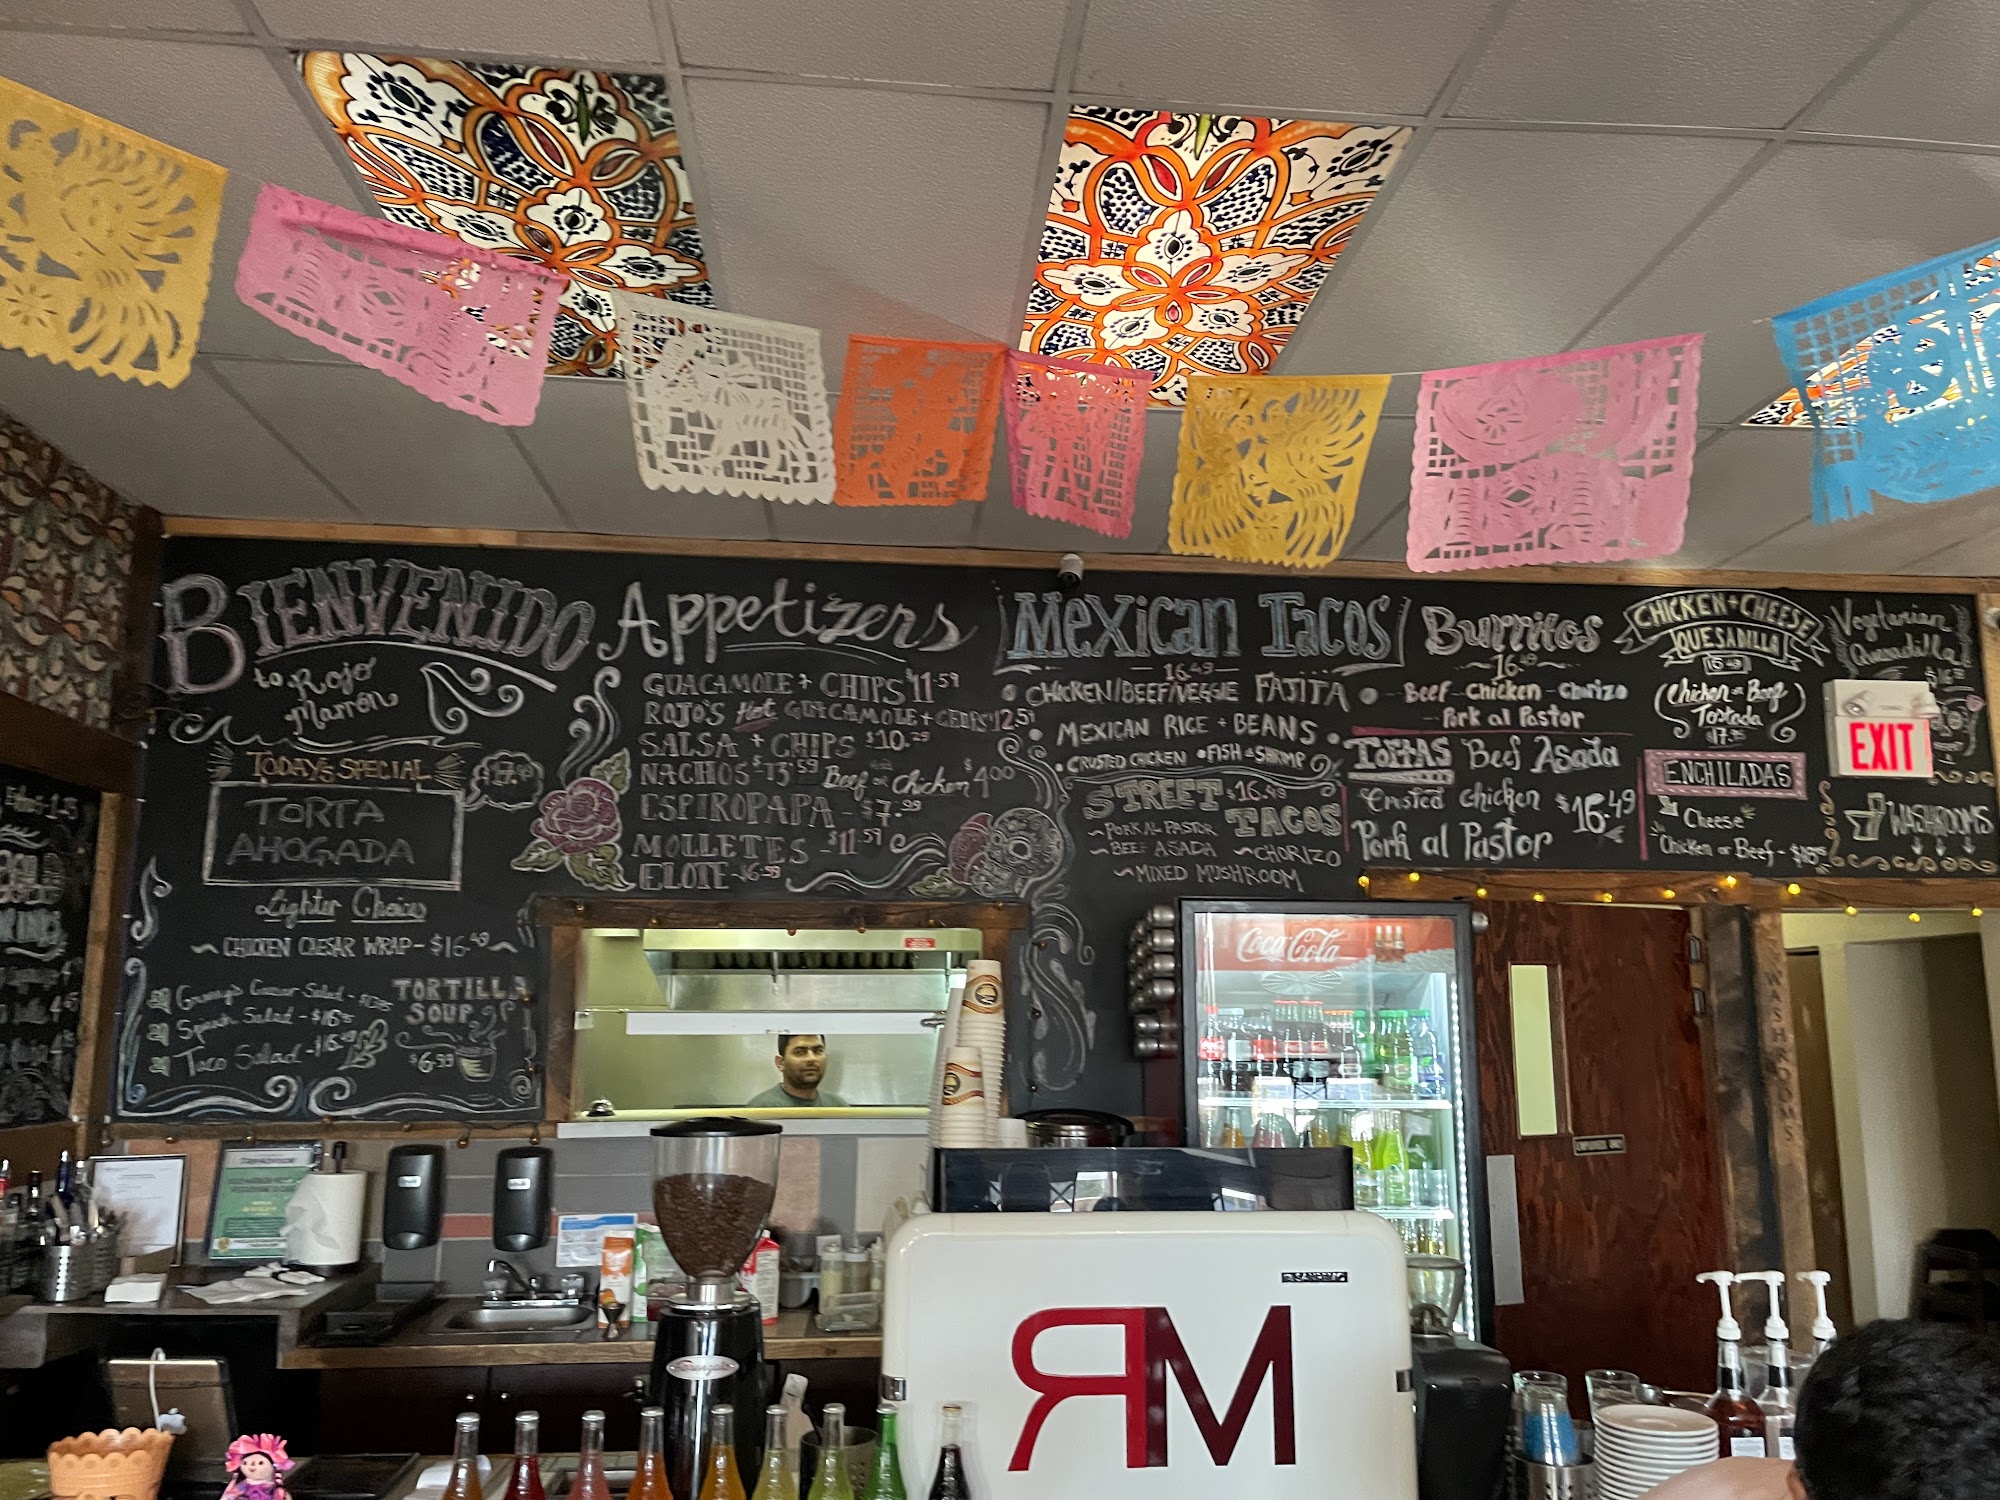 BIENVENIDO
to Rojo
Marron
TODAY'S SPECIAL
TORTA
AHOGADA
Lighter Choices
~ CHICKEN CAESAR WRAP - $16.49 ~
Caesar Salad -
Spinach Salad - $16
Taco Salad - $16
TORTILLA
SOUP
$6.99
Appetizers
GUACAMOLE + CHIPS $11.59
ROJO'S Hot GUACAMOLE + CHIPS $12.59
SALSA + CHIPS $10.29
NACHOS $13.59 Beef or Chicken $4.00
ESPIROPAPA - $7.99
MOLLETES - $11.59
ELOTE - $6.59
MEXICAN TACOS
16.49
• CHICKEN/BEEF/VEGGIE FAJITA •
• MEXICAN RICE + BEANS •
• CRUSTED CHICKEN • FISH • SHRIMP
STREET $16.49
TACOS
~ PORK AL PASTOR
~ BEEF ASADA ~ CHORIZO
~ MIXED MUSHROOM
Burritos
16.49
Beef - Chicken - Chorizo
- Pork al Pastor
TORTAS Beef Asada
Crusted Chicken $16.49
Pork al Pastor
CHICKEN + CHEESE
QUESADILLA
16.49
Chicken or Beef
Tostada
ENCHILADAS
Cheese
Chicken or Beef -
Vegetarian
Quesadilla
EXIT
WASHROOMS
Coca-Cola
WASHROOMS
SANREMO
RM